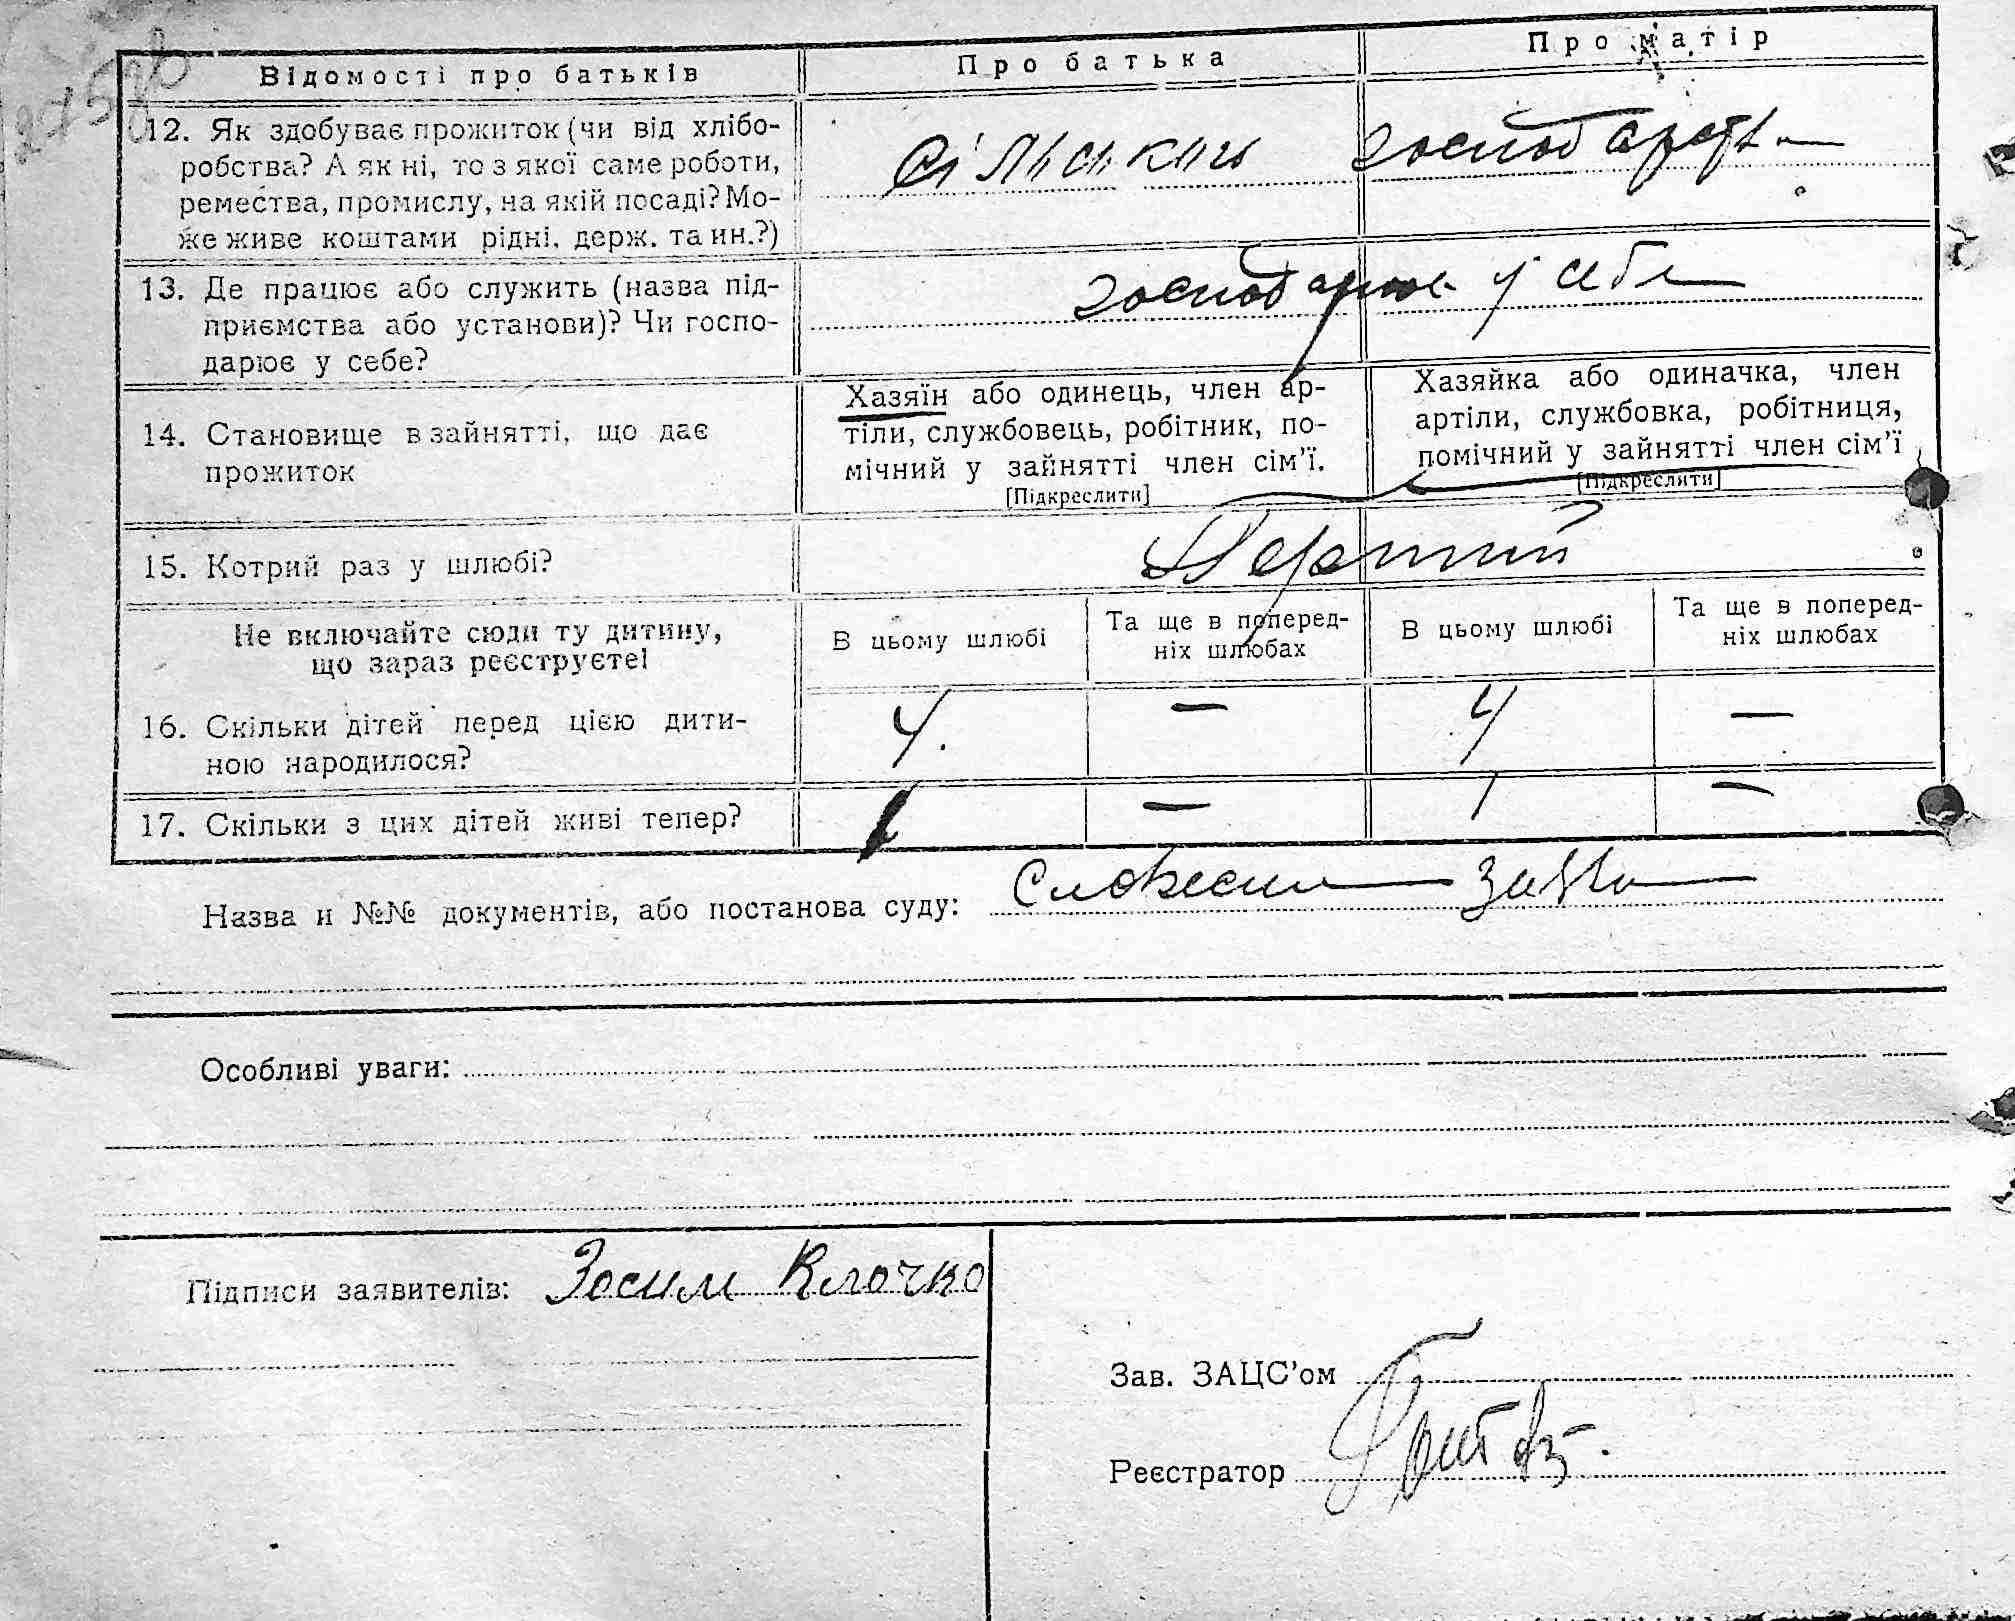 275 зв
Відомості про батьків
Про батька
Про матір
12. Як здобуває прожиток (чи від хлібо-
робства? А як ні, то з якої саме роботи,
ремества, промислу, на якій посаді? Мо-
же живе коштами рідні, держ. та ин.?)
сільським господарств
13. Де працює або служить (назва під-
приємства або установи)? Чи госпо-
дарює у себе?
господарює у себе
14. Становище в зайнятті, що дає
прожиток
Хазяїн або одинець, член ар-
тіли, службовець, робітник, по-
мічний у зайнятті член сім'ї.
[Підкреслити]
Хазяйка або одиначка, член
артіли, службовка, робітниця,
помічний у зайнятті член сім'ї
[Підкреслити]
15. Котрий раз у шлюбі?
Перший
Не включайте сюди ту дитину,
що зараз реєструєте!
В цьому шлюбі
Та ще в поперед-
ніх шлюбах
В цьому шлюбі
Та ще в поперед-
ніх шлюбах
16. Скільки дітей перед цією дити-
ною народилося?
4. — 4 —
17. Скільки з цих дітей живі тепер?
1 — 1 —
Назва и №№ документів, або постанова суду: Словесна заява
Особливі уваги:
Підписи заявителів: Зосим Клочко
Зав. ЗАЦС'ом
Реєстратор